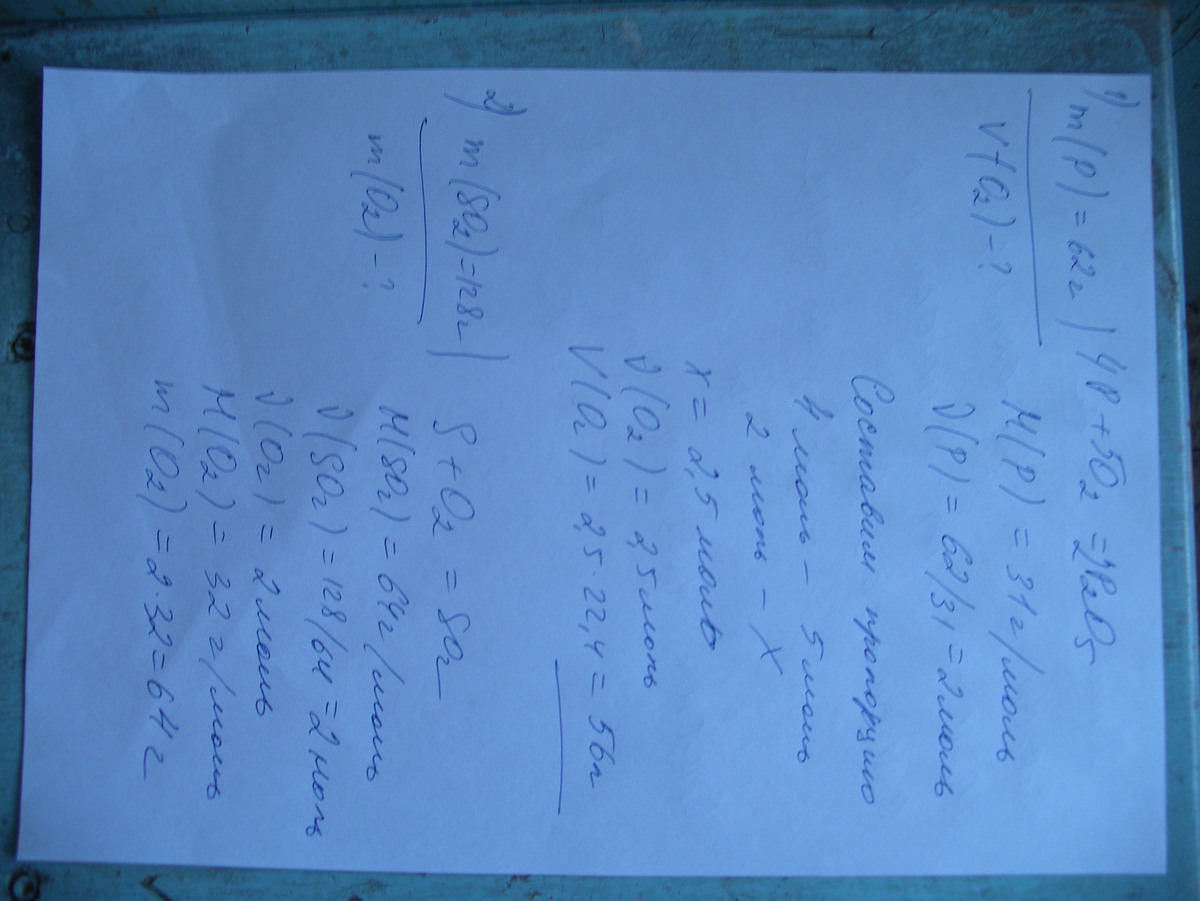 1) m(P) = 62г | 4P + 5O₂ = 2P₂O₅
V(O₂) - ? M(P) = 31 г/моль
ν(P) = 62/31 = 2 моль
Составим пропорцию
4 моль - 5 моль
2 моль - X
X = 2,5 моль
ν(O₂) = 2,5 моль
V(O₂) = 2,5·22,4 = 56л
2) m(SO₂) = 128г | S + O₂ = SO₂
m(O₂) - ? M(SO₂) = 64г/моль
ν(SO₂) = 128/64 = 2 моль
ν(O₂) = 2 моль
M(O₂) = 32 г/моль
m(O₂) = 2·32 = 64 г